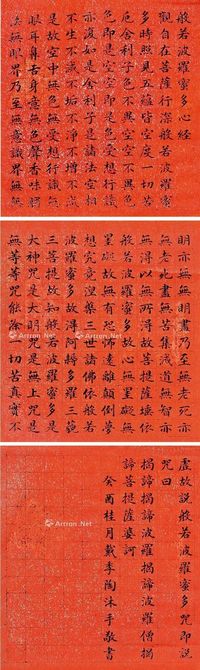 般若波羅蜜多心經
觀自在菩薩行深般若波羅蜜
多時照見五蘊皆空度一切苦
厄舍利子色不異空空不異色
色即是空空即是色受想行識
亦復如是舍利子是諸法空相
不生不滅不垢不淨不增不減
是故空中無色無受想行識無
眼耳鼻舌身意無色聲香味觸
法無眼界乃至無意識界無無
明亦無無明盡乃至無老死亦
無老死盡無苦集滅道無智亦
無得以無所得故菩提薩埵依
般若波羅蜜多故心無罣礙無
罣礙故無有恐怖遠離顛倒夢
想究竟涅槃三世諸佛依般若
波羅蜜多故得阿耨多羅三藐
三菩提故知般若波羅蜜多是
大神咒是大明咒是無上咒是
無等等咒能除一切苦真實不
虛故說般若波羅蜜多咒即說
咒曰
揭諦揭諦波羅揭諦波羅僧揭
諦菩提薩婆訶
癸酉桂月戴季陶沐手敬書
Artron.Net
Artron.Net
Artron.Net